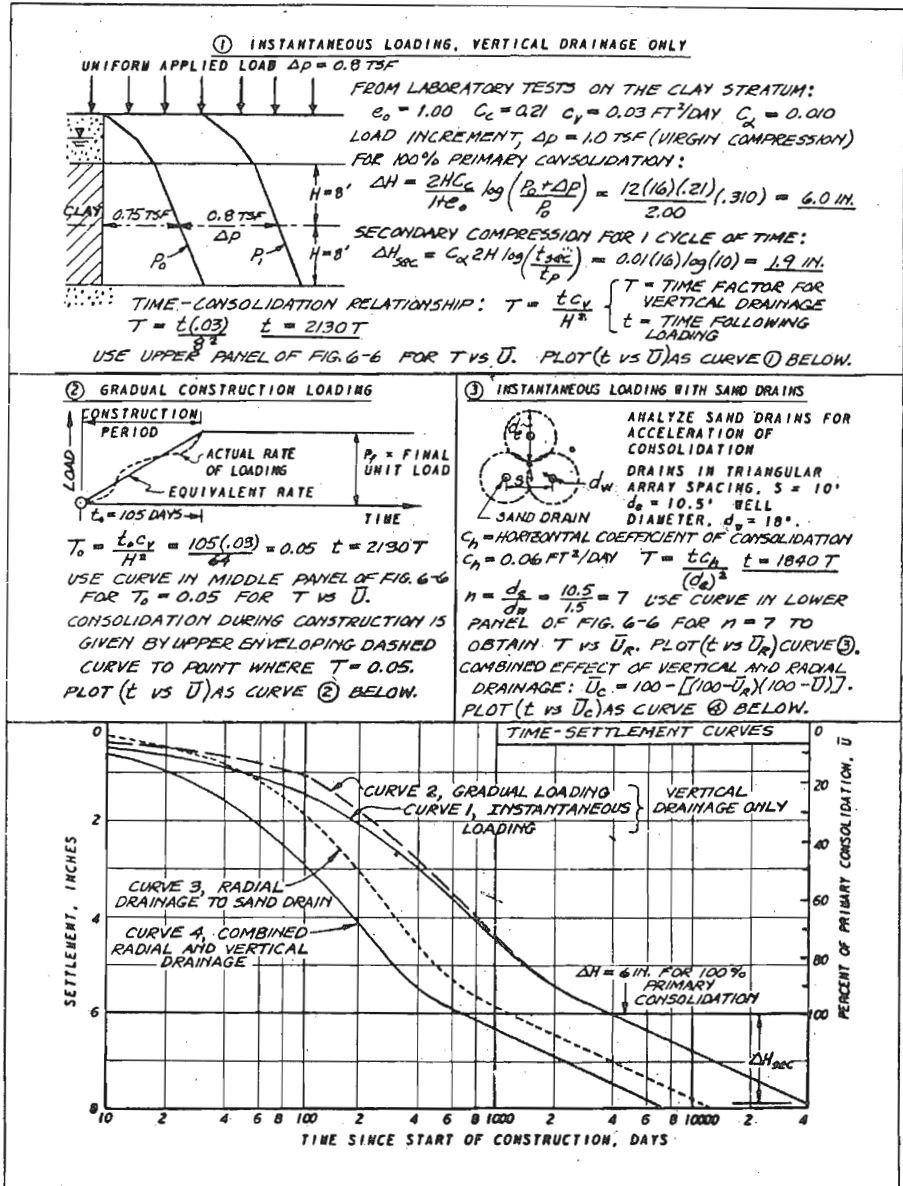 ① INSTANTANEOUS LOADING, VERTICAL DRAINAGE ONLY
UNIFORM APPLIED LOAD Δp = 0.8 TSF
FROM LABORATORY TESTS ON THE CLAY STRATUM:
e₀ = 1.00 C_c = 0.21 c_v = 0.03 FT²/DAY C_α = 0.010
LOAD INCREMENT, Δp = 1.0 TSF (VIRGIN COMPRESSION)
FOR 100% PRIMARY CONSOLIDATION:
ΔH = 2HC_c/1+e₀ log(P₀+ΔP/P₀) = 12(16)(.21)/2.00 (.310) = 6.0 IN.
H = 8'
CLAY
0.75 TSF
0.8 TSF
Δp
P₀
P₁
H = 8'
SECONDARY COMPRESSION FOR 1 CYCLE OF TIME:
ΔH_sec = C_α 2H log(t_sec/t_p) = 0.01(16) log(10) = 1.9 IN.
TIME-CONSOLIDATION RELATIONSHIP: T = tc_v/H²
T = TIME FACTOR FOR
VERTICAL DRAINAGE
t = TIME FOLLOWING
LOADING
T = t(.03)/8² t = 2130 T
USE UPPER PANEL OF FIG. 6-6 FOR T VS Ū. PLOT (t VS Ū) AS CURVE ① BELOW.
② GRADUAL CONSTRUCTION LOADING
CONSTRUCTION
PERIOD
LOAD
ACTUAL RATE
OF LOADING
EQUIVALENT RATE
P_f = FINAL
UNIT LOAD
t₀ = 105 DAYS
TIME
T₀ = t₀c_v/H² = 105(.03)/64 = 0.05 t = 2130 T
USE CURVE IN MIDDLE PANEL OF FIG. 6-6
FOR T₀ = 0.05 FOR T VS Ū.
CONSOLIDATION DURING CONSTRUCTION IS
GIVEN BY UPPER ENVELOPING DASHED
CURVE TO POINT WHERE T = 0.05.
PLOT (t VS Ū) AS CURVE ② BELOW.
③ INSTANTANEOUS LOADING WITH SAND DRAINS
d_e
S
d_w
SAND DRAIN
ANALYZE SAND DRAINS FOR
ACCELERATION OF
CONSOLIDATION
DRAINS IN TRIANGULAR
ARRAY SPACING, S = 10'
d_e = 10.5' WELL
DIAMETER, d_w = 18".
C_h = HORIZONTAL COEFFICIENT OF CONSOLIDATION
C_h = 0.06 FT²/DAY T = tC_h/(d_e)² t = 1840 T
n = d_e/d_w = 10.5/1.5 = 7 USE CURVE IN LOWER
PANEL OF FIG. 6-6 FOR n = 7 TO
OBTAIN T VS Ū_R. PLOT (t VS Ū_R) CURVE ③.
COMBINED EFFECT OF VERTICAL AND RADIAL
DRAINAGE: Ū_C = 100 - [(100-Ū_R)(100-Ū)].
PLOT (t VS Ū_C) AS CURVE ④ BELOW.
TIME-SETTLEMENT CURVES
CURVE 2, GRADUAL LOADING
CURVE 1, INSTANTANEOUS
LOADING
VERTICAL
DRAINAGE ONLY
CURVE 3, RADIAL
DRAINAGE TO SAND DRAIN
CURVE 4, COMBINED
RADIAL AND VERTICAL
DRAINAGE
ΔH = 6 IN. FOR 100%
PRIMARY
CONSOLIDATION
ΔH_sec
SETTLEMENT, INCHES
0
2
4
6
8
PERCENT OF PRIMARY CONSOLIDATION, Ū
0
20
40
60
80
100
10 2 4 6 100 2 4 6 8 1000 2 4 6 8 10000 2 4
TIME SINCE START OF CONSTRUCTION, DAYS